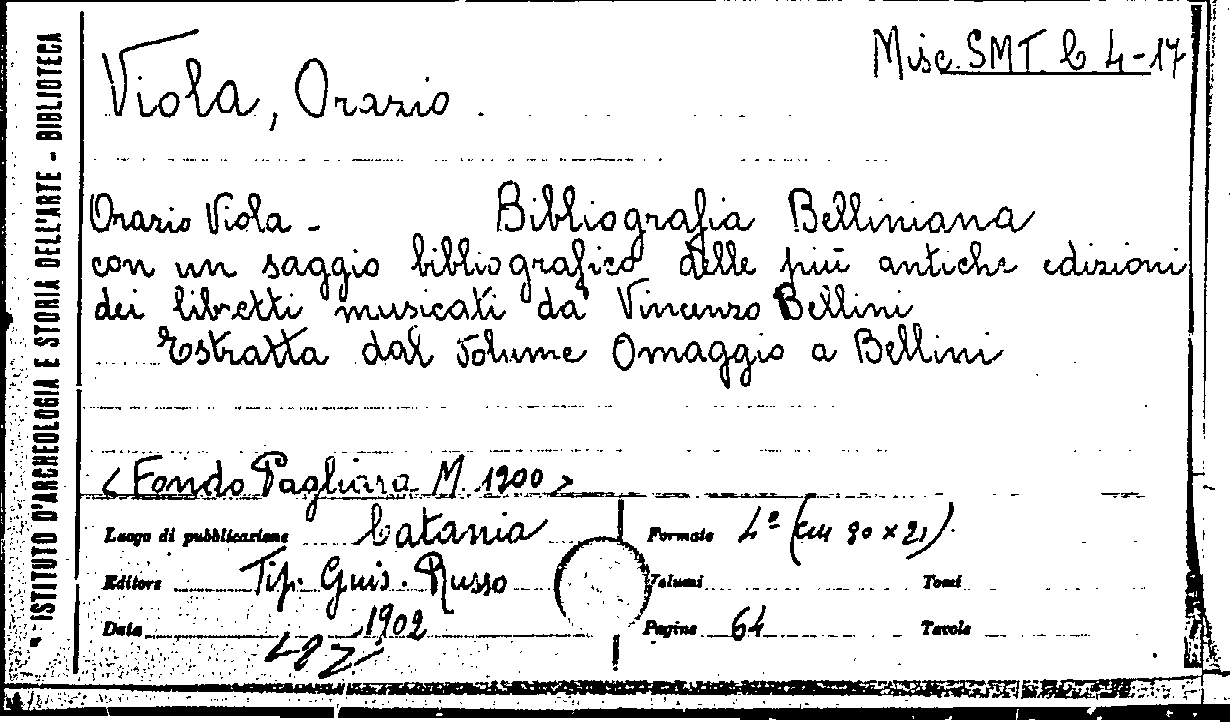 ISTITUTO D'ARCHEOLOGIA E STORIA DELL'ARTE - BIBLIOTECA
Misc. SMT. b 4-17
Viola, Orazio.
Orazio Viola - Bibliografia Belliniana
con un saggio bibliografico delle più antiche edizioni
dei libretti musicati da Vincenzo Bellini
Estratta dal Volume Omaggio a Bellini
<Fondo Pagliara M. 1200>
Luogo di pubblicazione Catania Formato 4º (cm 30 x 21)
Editore Tip. Guis. Russo Volumi Tomi
Data 1902 Pagine 64 Tavole